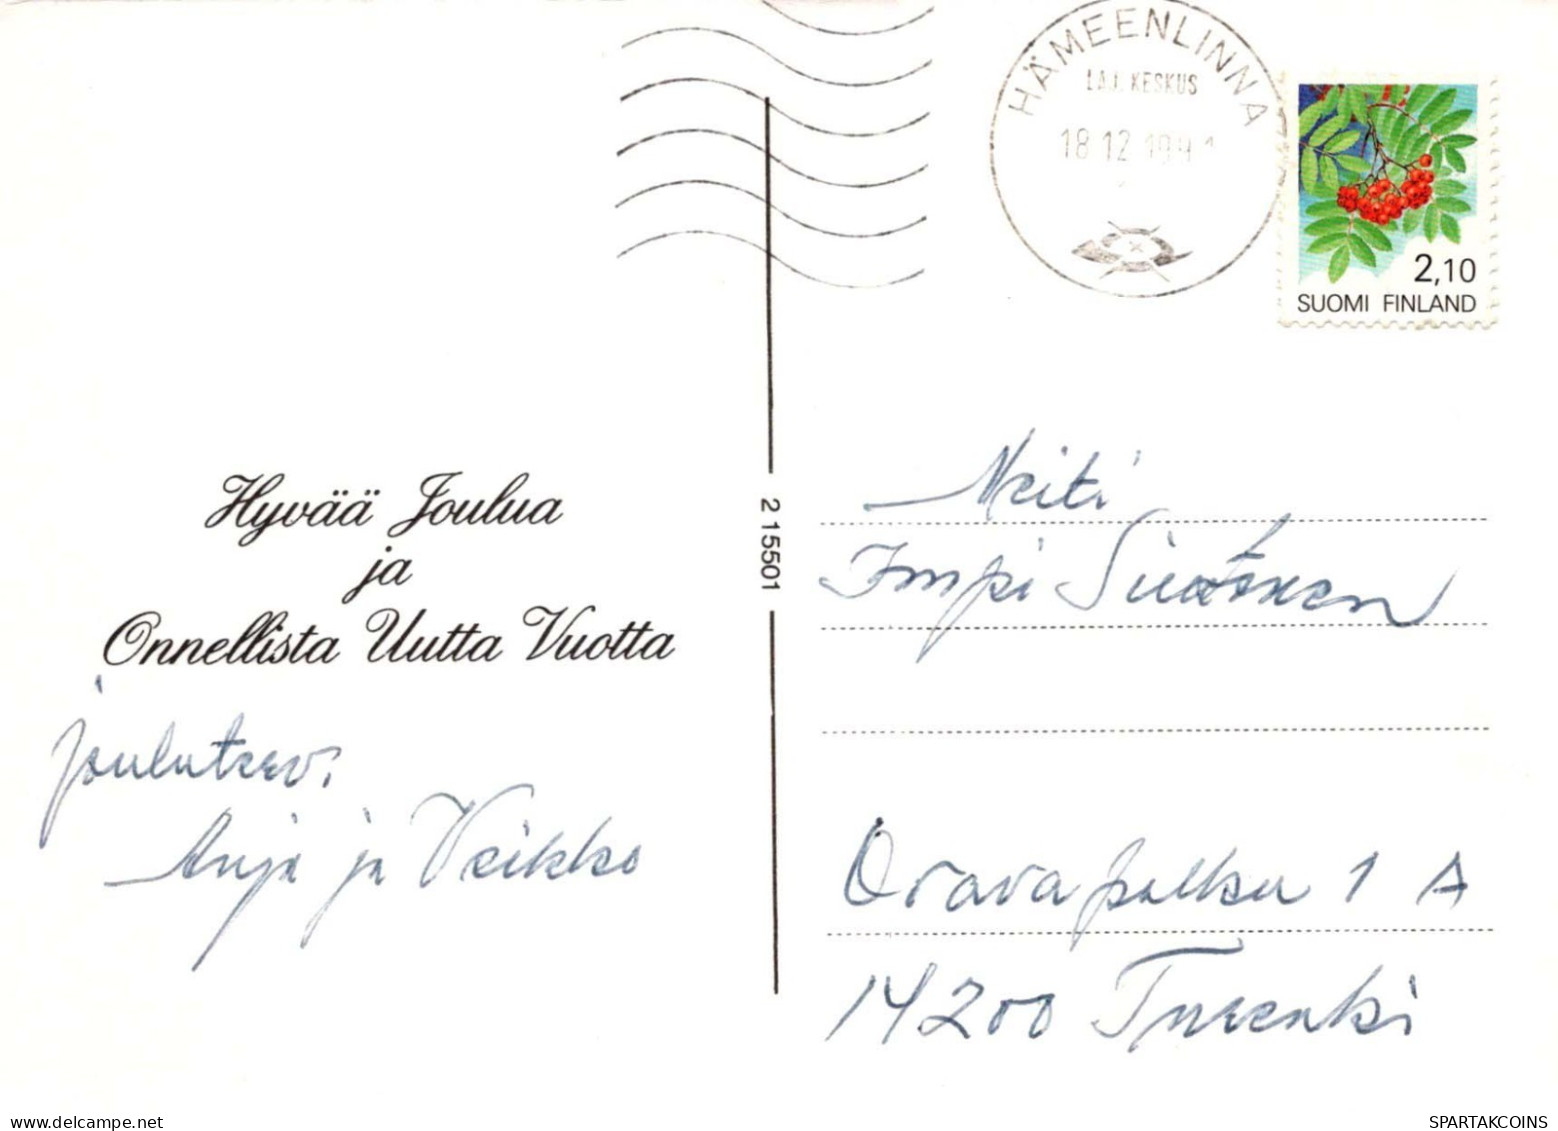 HÄMEENLINNA
LAJ. KESKUS
18 12 19
2,10
SUOMI FINLAND
Hyvää Joulua
ja
Onnellista Uutta Vuotta
2 15501
jouluterv.
Anja ja Veikko
Neiti
Impi
Oravapolku 1 A
14200 Turenki
SPARTAKCOINS
www.delcampe.net